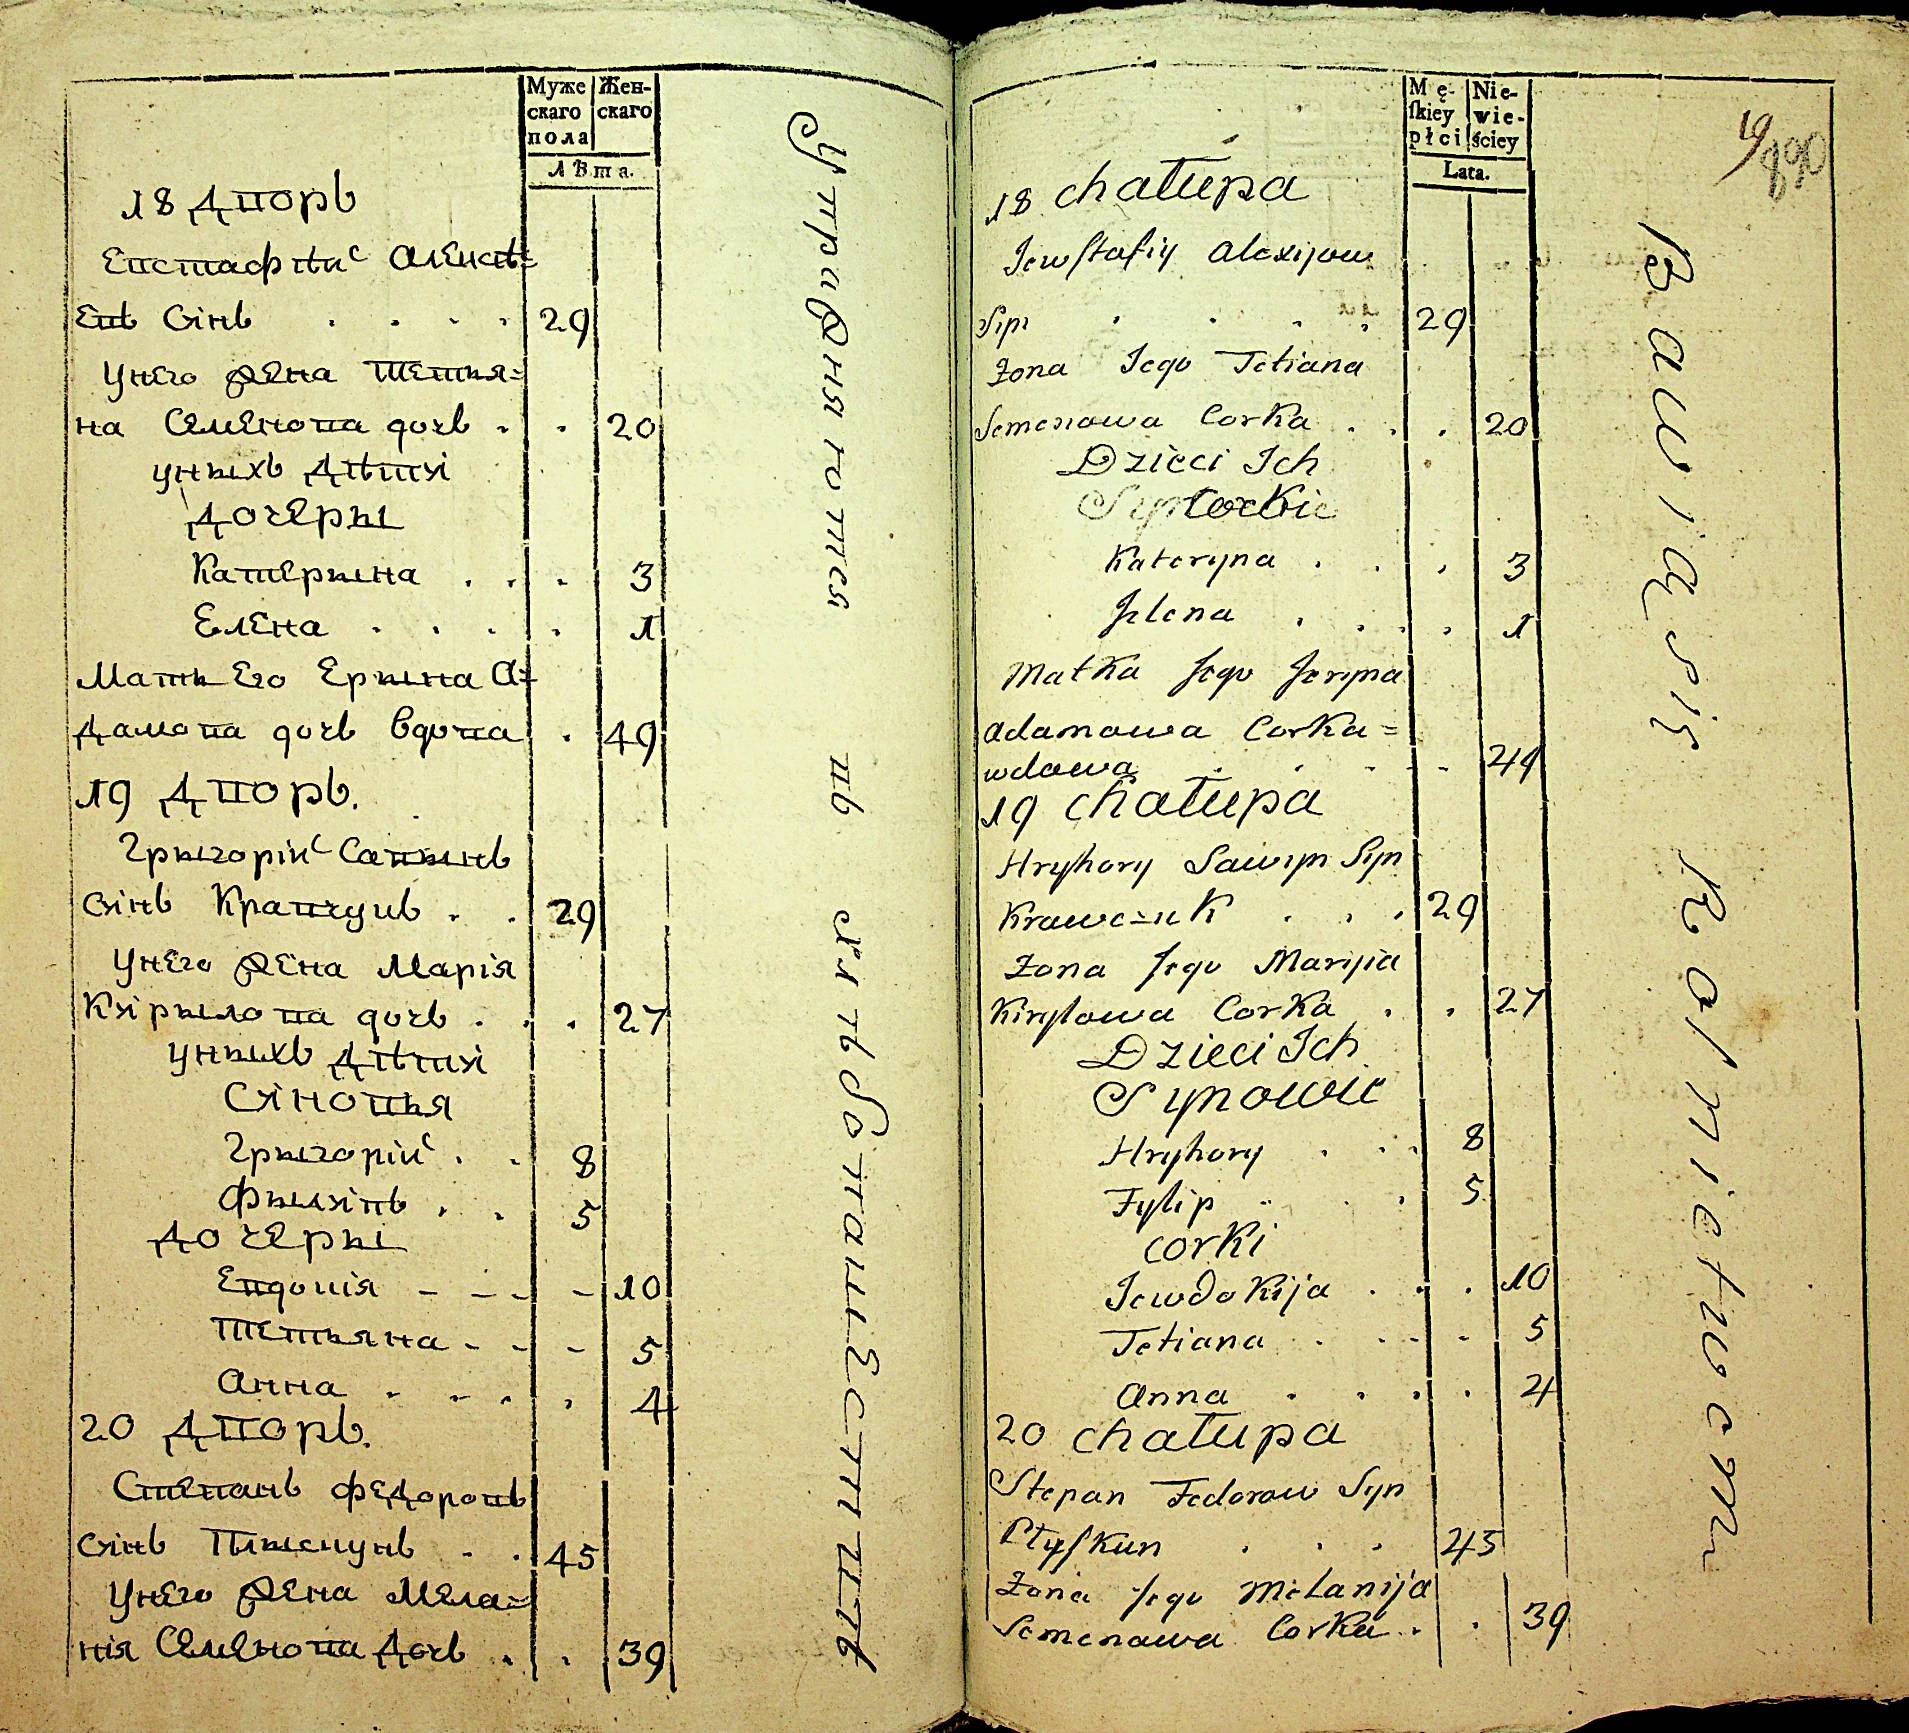 Муже
скаго
пола
Жен-
скаго
Лѣта.
18 Дворъ
Евстафій Алексѣ=
евъ Сінъ . . . . 29
Унего жена Тетия=
на Семенова дочъ . . 20
уныхъ дѣти
Дочеры
Катерына . . . 3
Елена . . . . 1
Мать Его Ерына А=
дамова дочъ вдова . 49
19 Дворъ.
Грыгорій Савынъ
Сінъ Кравчукъ . . 29
Унего жена Марія
Кірылова дочъ . . . 27
уныхъ дѣти
Синовья
Грыгорій . . 8
Филипъ . . 5
Дочеры
Евдокія - - - - 10
Тетьяна - - - 5
Анна . . . . 4
20 Дворъ.
Степанъ Федоровъ
сінъ Птыскунъ . . 45
Унего жена Мела=
нія Семенова Дочъ . . 39
Упражняются въ хлѣбопашествѣ
Mę-
ſkiey
płci
Nie-
wie-
ściey
Lata.
19
890
18 chałupa
Jewſtafiy Alexijow
Syn . . . . 29
Żona Jego Tetiana
Semenowa Corka . . . 20
Dzieci Ich
Corkie
Kateryna . . . 3
Jelena . . . . 1
Matka Jego Jeryna
Adamowa Corka =
wdowa . . . . 49
19 chałupa
Hryhory Sawyn Syn
Krawczuk . . . 29
Żona Jego Maryia
Kiryłowa Corka . . 27
Dzieci Ich
Synowie
Hryhory . . . 8
Fylip . . . 5
corki
Jewdokija . . . 10
Tetiana . . - - 5
Anna . . . . 4
20 chałupa
Stepan Fedorow Syn
Ptyſkun . . . 45
Żona Jego Melanija
Semenowa Corka . . 39
Bawią się Rolnictwem